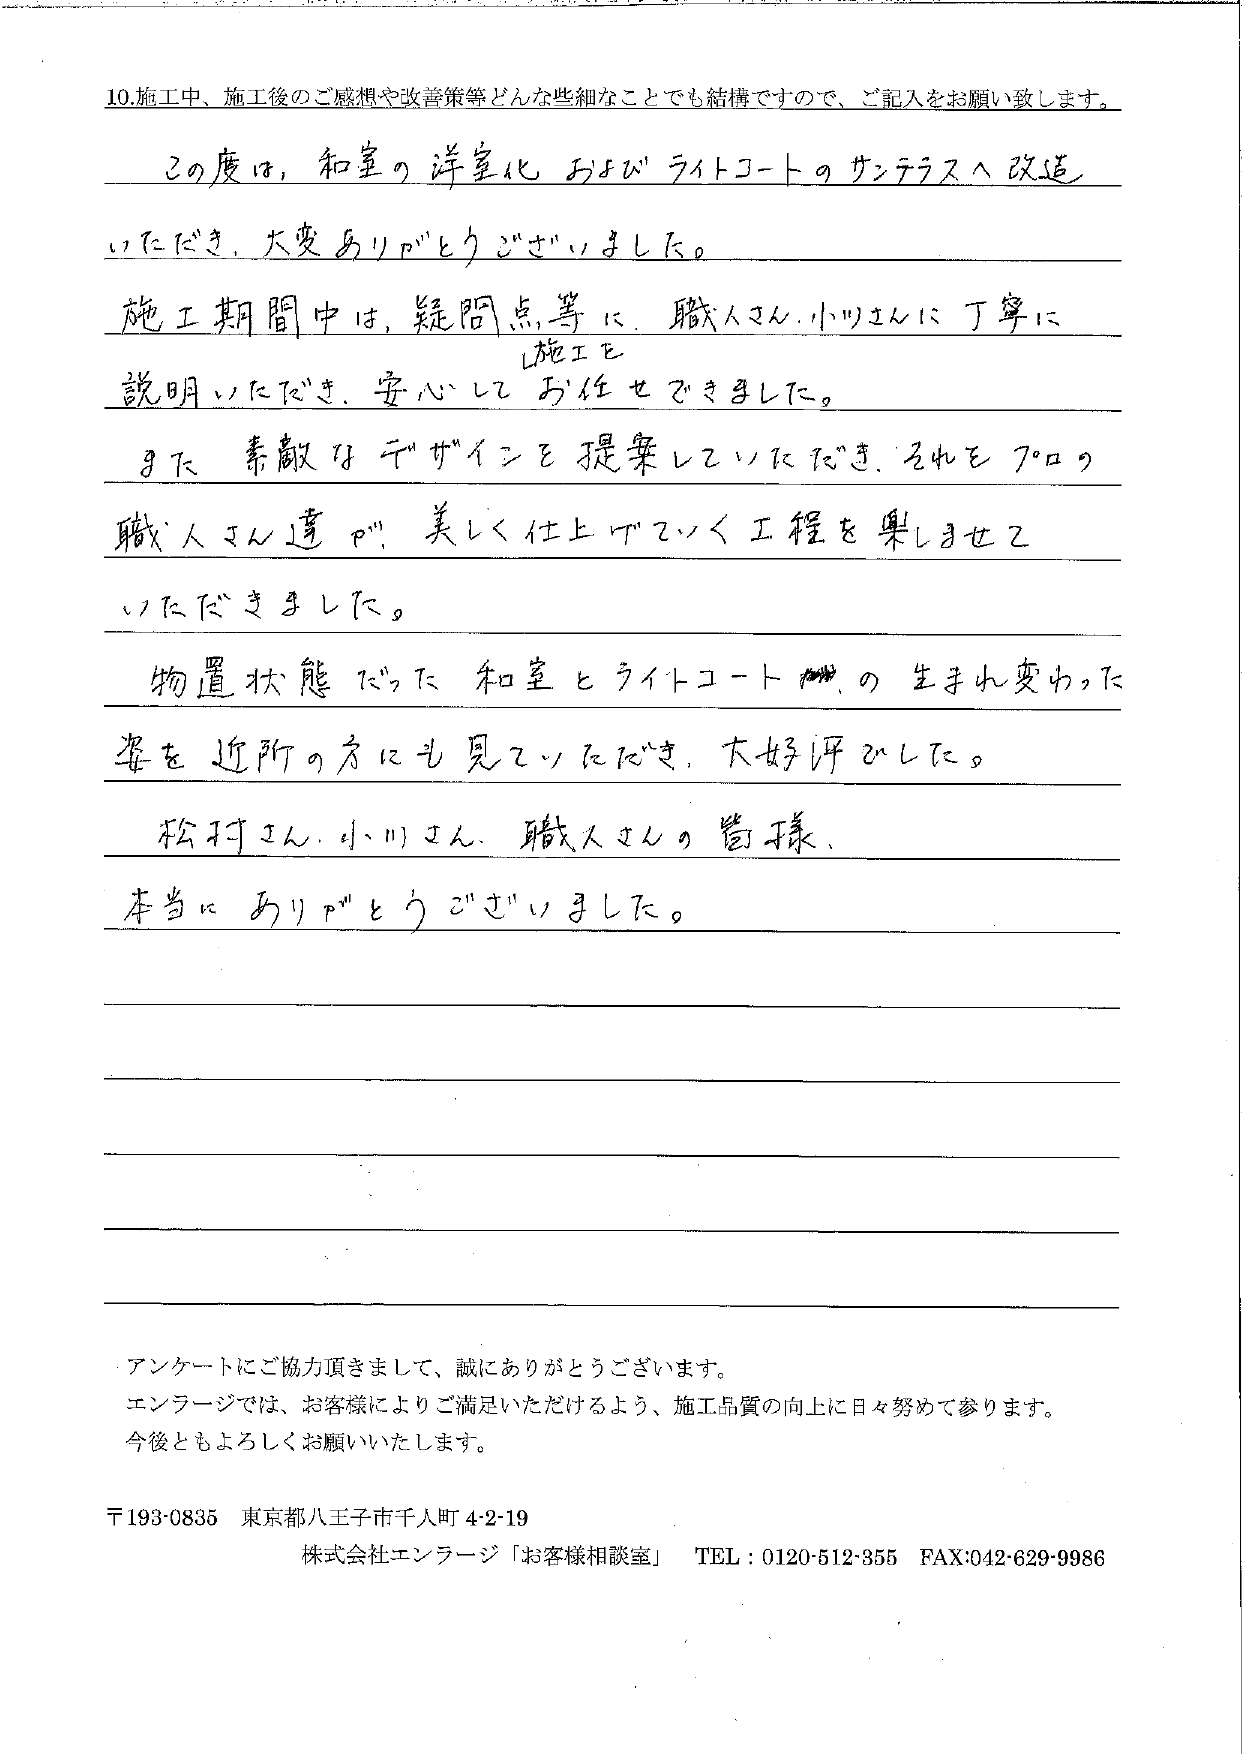 10.施工中、施工後のご感想や改善策等どんな些細なことでも結構ですので、ご記入をお願い致します。
この度は、和室の洋室化 および ライトコートのサンテラスへ改造
いただき、大変ありがとうございました。
施工期間中は、疑問点等に、職人さん、小川さんに丁寧に
施工を
説明いただき、安心して お任せできました。
また 素敵なデザインを提案していただき、それをプロの
職人さん達が、美しく仕上げていく工程を楽しませて
いただきました。
物置状態だった 和室とライトコート の 生まれ変わった
姿を 近所の方にも見ていただき、大好評でした。
松村さん、小川さん、職人さんの皆様、
本当に ありがとうございました。
アンケートにご協力頂きまして、誠にありがとうございます。
エンラージでは、お客様によりご満足いただけるよう、施工品質の向上に日々努めて参ります。
今後ともよろしくお願いいたします。
〒193-0835 東京都八王子市千人町 4-2-19
株式会社エンラージ「お客様相談室」 TEL : 0120-512-355 FAX:042-629-9986